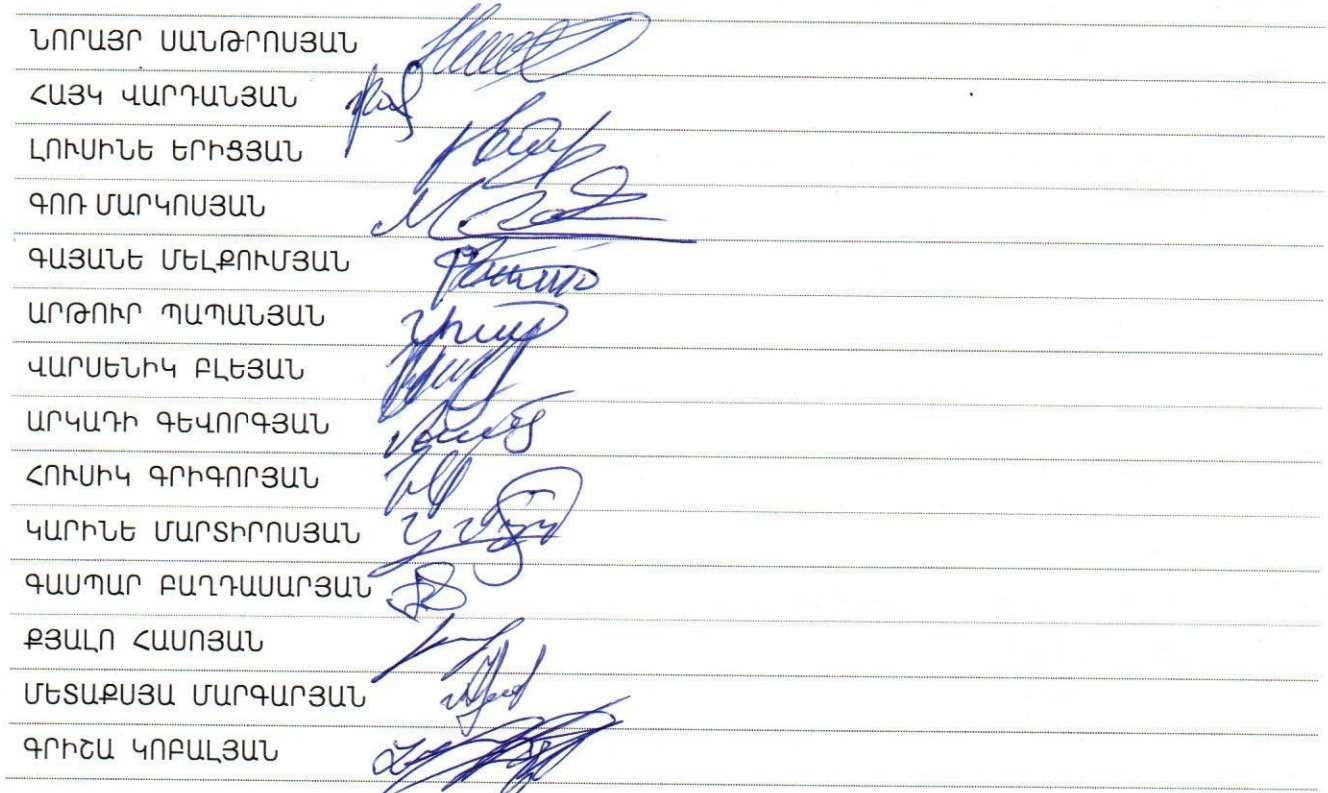 ՆՈՐԱՅՐ ՍԱՆԹՐՈՍՅԱՆ
ՀԱՅԿ ՎԱՐԴԱՆՅԱՆ
ԼՈՒՍԻՆԵ ԵՐԻՑՅԱՆ
ԳՈՌ ՄԱՐԿՈՍՅԱՆ
ԳԱՅԱՆԵ ՄԵԼՔՈՒՄՅԱՆ
ԱՐԹՈՒՐ ՊԱՊԱՆՅԱՆ
ՎԱՐՍԵՆԻԿ ԲԼԵՅԱՆ
ԱՐԿԱԴԻ ԳԵՎՈՐԳՅԱՆ
ՀՈՒՍԻԿ ԳՐԻԳՈՐՅԱՆ
ԿԱՐԻՆԵ ՄԱՐՏԻՐՈՍՅԱՆ
ԳԱՍՊԱՐ ԲԱՂԴԱՍԱՐՅԱՆ
ՔՅԱԼՈ ՀԱՍՈՅԱՆ
ՄԵՏԱՔՍՅԱ ՄԱՐԳԱՐՅԱՆ
ԳՐԻՇԱ ԿՈԲԱԼՅԱՆ